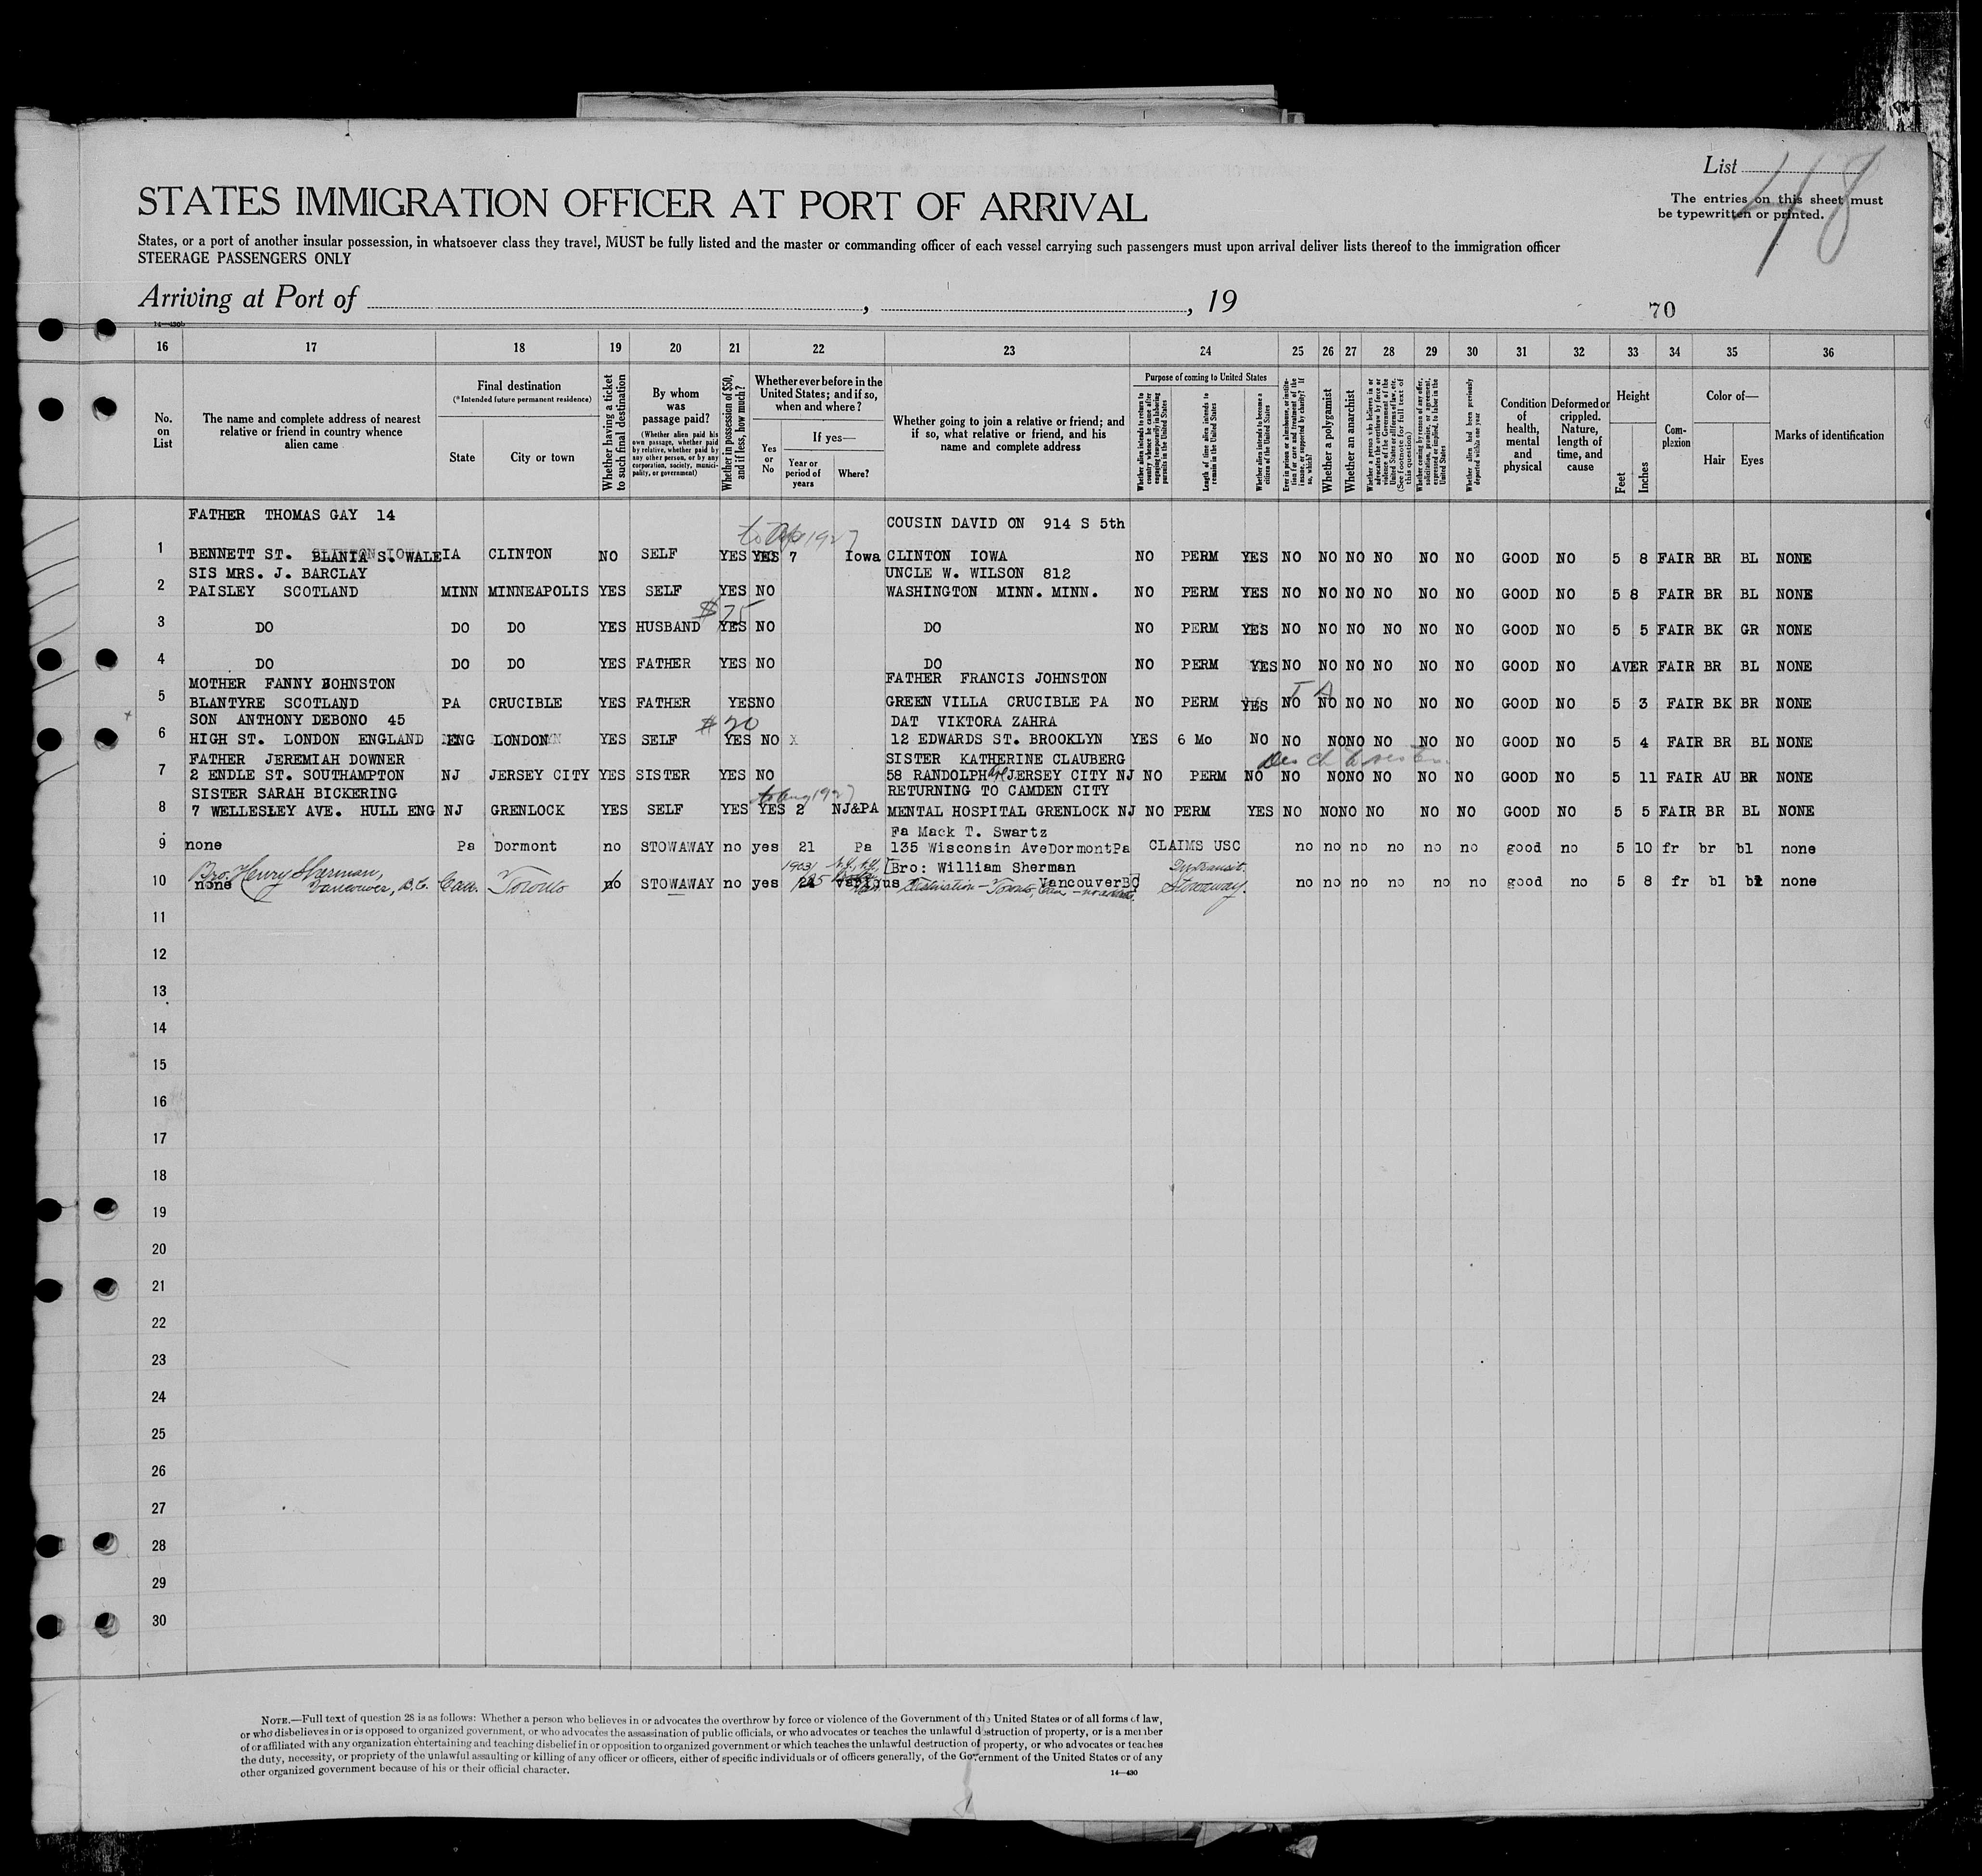 List 48
The entries on this sheet must
be typewritten or printed.
STATES IMMIGRATION OFFICER AT PORT OF ARRIVAL
States, or a port of another insular possession, in whatsoever class they travel, MUST be fully listed and the master or commanding officer of each vessel carrying such passengers must upon arrival deliver lists thereof to the immigration officer
STEERAGE PASSENGERS ONLY
Arriving at Port of , , 19
70
14—430b
16 17 18 19 20 21 22 23 24 25 26 27 28 29 30 31 32 33 34 35 36
No. on List
The name and complete address of nearest relative or friend in country whence alien came
Final destination
(*Intended future permanent residence)
State
City or town
Whether having a ticket to such final destination
By whom was passage paid?
(Whether alien paid his own passage, whether paid by relative, whether paid by any other person, or by any corporation, society, municipality, or government)
Whether in possession of $50, and if less, how much?
Whether ever before in the United States; and if so, when and where?
Yes or No
If yes—
Year or period of years
Where?
Whether going to join a relative or friend; and if so, what relative or friend, and his name and complete address
Purpose of coming to United States
Whether alien intends to return to country whence he came after engaging temporarily in laboring pursuits in the United States
Length of time alien intends to remain in the United States
Whether alien intends to become a citizen of the United States
Ever in prison or almshouse, or institution for care and treatment of the insane, or supported by charity? If so, which?
Whether a polygamist
Whether an anarchist
Whether a person who believes in or advocates the overthrow by force or violence of the Government of the United States or all forms of law, etc. (See footnote for full text of this question)
Whether coming by reason of any offer, solicitation, promise, or agreement, expressed or implied, to labor in the United States
Whether alien had been previously deported within one year
Condition of health, mental and physical
Deformed or crippled. Nature, length of time, and cause
Height
Feet
Inches
Complexion
Color of—
Hair
Eyes
Marks of identification
FATHER THOMAS GAY 14 COUSIN DAVID ON 914 S 5th
1 BENNETT ST. BLANIA S. WALE IA CLINTON NO SELF YES YES 7 Iowa CLINTON IOWA NO PERM YES NO NO NO NO NO NO GOOD NO 5 8 FAIR BR BL NONE
SIS MRS. J. BARCLAY UNCLE W. WILSON 812
2 PAISLEY SCOTLAND MINN MINNEAPOLIS YES SELF YES NO WASHINGTON MINN. MINN. NO PERM YES NO NO NO NO NO NO GOOD NO 5 8 FAIR BR BL NONE
$75
3 DO DO DO YES HUSBAND YES NO DO NO PERM YES NO NO NO NO NO NO GOOD NO 5 5 FAIR BK GR NONE
4 DO DO DO YES FATHER YES NO DO NO PERM YES NO NO NO NO NO NO GOOD NO AVER FAIR BR BL NONE
MOTHER FANNY JOHNSTON FATHER FRANCIS JOHNSTON
5 BLANTYRE SCOTLAND PA CRUCIBLE YES FATHER YES NO GREEN VILLA CRUCIBLE PA NO PERM YES NO NO NO NO NO NO GOOD NO 5 3 FAIR BK BR NONE
SON ANTHONY DEBONO 45 $20 DAT VIKTORA ZAHRA
6 HIGH ST. LONDON ENGLAND ENG LONDON YES SELF YES NO X 12 EDWARDS ST. BROOKLYN YES 6 Mo NO NO NO NO NO NO NO GOOD NO 5 4 FAIR BR BL NONE
FATHER JEREMIAH DOWNER SISTER KATHERINE CLAUBERG
7 2 ENDLE ST. SOUTHAMPTON NJ JERSEY CITY YES SISTER YES NO 58 RANDOLPH Ave JERSEY CITY NJ NO PERM NO NO NO NO NO NO NO GOOD NO 5 11 FAIR AU BR NONE
SISTER SARAH BICKERING to Aug 1927 RETURNING TO CAMDEN CITY
8 7 WELLESLEY AVE. HULL ENG NJ GRENLOCK YES SELF YES YES 2 NJ&PA MENTAL HOSPITAL GRENLOCK NJ NO PERM YES NO NO NO NO NO NO GOOD NO 5 5 FAIR BR BL NONE
Fa Mack T. Swartz
9 none Pa Dormont no STOWAWAY no yes 21 Pa 135 Wisconsin AveDormontPa CLAIMS USC no no no no no no good no 5 10 fr br bl none
Bro. Henry Sherman, 1903 Bro: William Sherman In transit
10 none Vancouver, B.C. Can. Toronto no STOWAWAY no yes various Destination - Toronto, Can - VancouverBC Stowaway. no no no no no no good no 5 8 fr bl none
11
12
13
14
15
16
17
18
19
20
21
22
23
24
25
26
27
28
29
30
NOTE.—Full text of question 28 is as follows: Whether a person who believes in or advocates the overthrow by force or violence of the Government of the United States or of all forms of law,
or who disbelieves in or is opposed to organized government, or who advocates the assassination of public officials, or who advocates or teaches the unlawful destruction of property, or is a member
of or affiliated with any organization entertaining and teaching disbelief in or opposition to organized government or which teaches the unlawful destruction of property, or who advocates or teaches
the duty, necessity, or propriety of the unlawful assaulting or killing of any officer or officers, either of specific individuals or of officers generally, of the Government of the United States or of any
other organized government because of his or their official character.
14—430